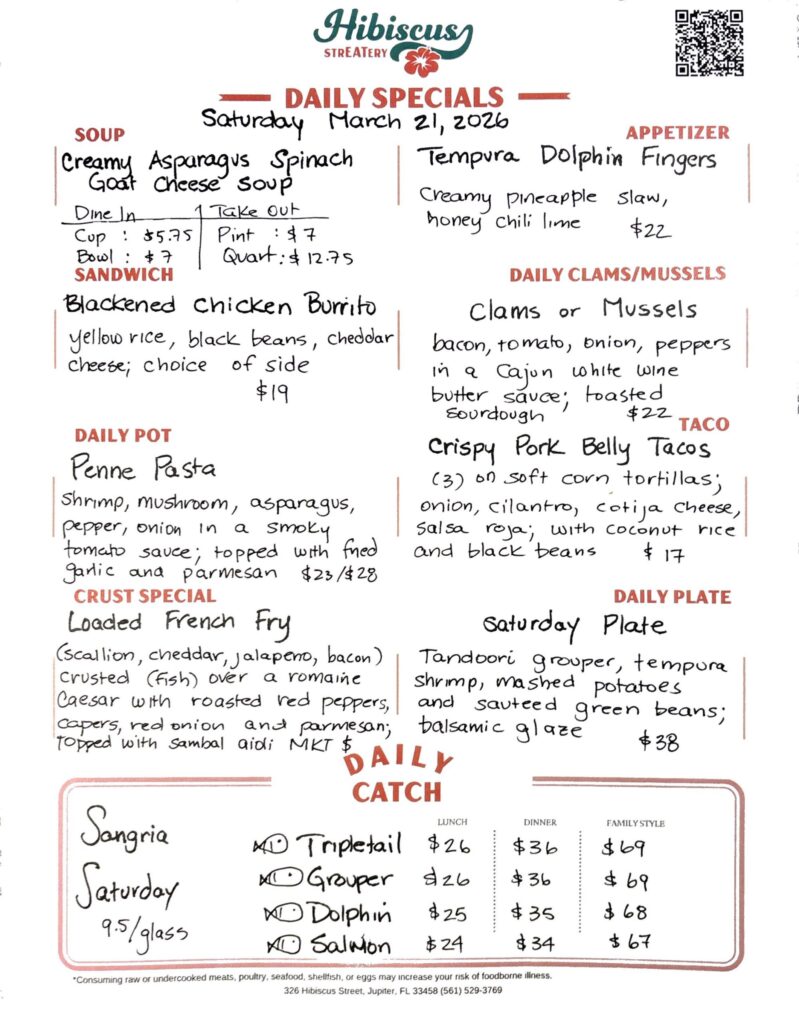 Hibiscus
STREATERY
DAILY SPECIALS
Saturday March 21, 2026
SOUP
Creamy Asparagus Spinach
Goat Cheese Soup
Dine In Take Out
Cup : $5.75 Pint : $7
Bowl : $7 Quart : $12.75
APPETIZER
Tempura Dolphin Fingers
Creamy pineapple slaw,
honey chili lime $22
SANDWICH
Blackened Chicken Burrito
yellow rice, black beans, cheddar
cheese; choice of side
$19
DAILY CLAMS/MUSSELS
Clams or Mussels
bacon, tomato, onion, peppers
in a Cajun white wine
butter sauce; toasted
sourdough $22
DAILY POT
Penne Pasta
Shrimp, mushroom, asparagus,
pepper, onion in a smoky
tomato sauce; topped with fried
garlic and parmesan $23/$28
TACO
Crispy Pork Belly Tacos
(3) on soft corn tortillas;
onion, cilantro, cotija cheese,
salsa roja; with coconut rice
and black beans $17
CRUST SPECIAL
Loaded French Fry
(scallion, cheddar, jalapeno, bacon)
crusted (fish) over a romaine
Caesar with roasted red peppers,
capers, red onion and parmesan;
topped with sambal aioli MKT $
DAILY PLATE
Saturday Plate
Tandoori grouper, tempura
shrimp, mashed potatoes
and sauteed green beans;
balsamic glaze
$38
DAILY
CATCH
Sangria
Saturday
9.5/glass
LUNCH DINNER FAMILY STYLE
Tripletail $26 $36 $69
Grouper $26 $36 $69
Dolphin $25 $35 $68
Salmon $24 $34 $67
*Consuming raw or undercooked meats, poultry, seafood, shellfish, or eggs may increase your risk of foodborne illness.
326 Hibiscus Street, Jupiter, FL 33458 (561) 529-3769